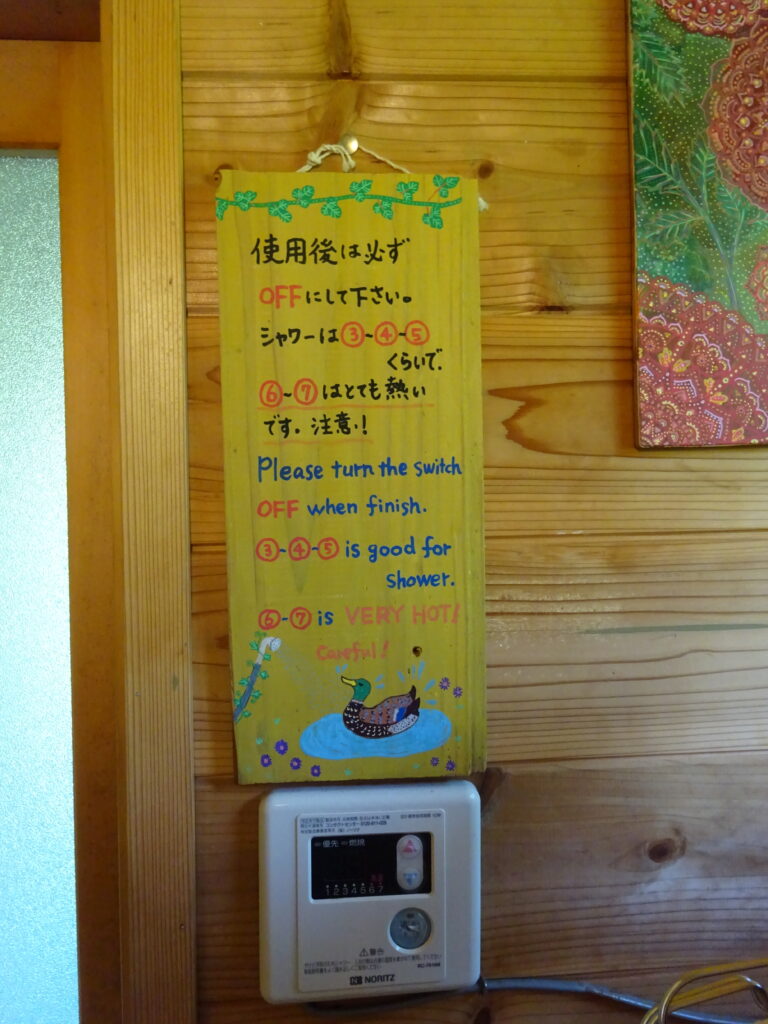 使用後は必ず
OFFにして下さい。
シャワーは③-④-⑤
くらいで.
⑥~⑦はとても熱い
です。注意!
Please turn the switch
OFF when finish.
③-④-⑤ is good for
shower.
⑥-⑦ is VERY HOT!
Careful!
優先 燃焼
1 2 3 4 5 6 7
警告
NORITZ